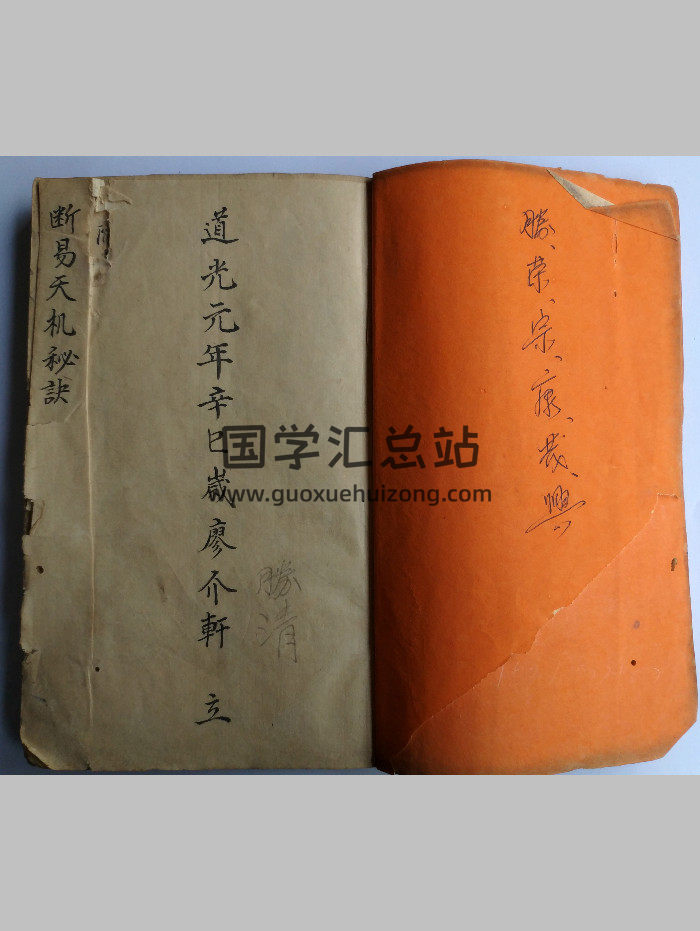 勝、荣、宗、康、茂、興
道光元年辛巳歲廖介軒 立
勝清
断易天机秘訣
国学汇总站
www.guoxuehuizong.com